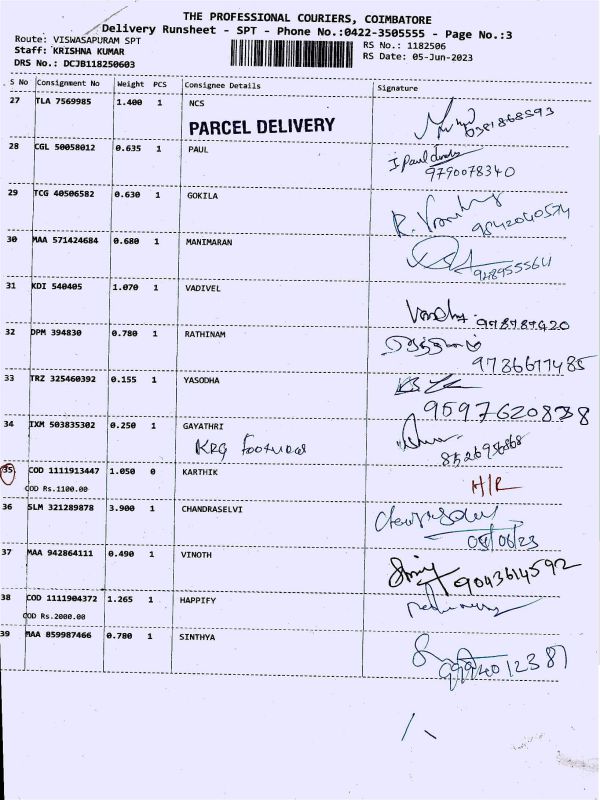 THE PROFESSIONAL COURIERS, COIMBATORE
Delivery Runsheet - SPT - Phone No.:0422-3505555 - Page No.:3
Route: VISWASAPURAM SPT
Staff: KRISHNA KUMAR
DRS No.: DCJB118250603
RS No.: 1182506
RS Date: 05-Jun-2023
S No Consignment No Weight PCS Consignee Details Signature
27 TLA 7569985 1.400 1 NCS
PARCEL DELIVERY
28 CGL 50058012 0.635 1 PAUL
9790078340
29 TCG 40506582 0.630 1 GOKILA
9542040574
30 MAA 571424684 0.680 1 MANIMARAN
9489555611
31 KDI 540405 1.070 1 VADIVEL
978787420
32 DPM 394830 0.780 1 RATHINAM
9786617485
33 TRZ 325460392 0.155 1 YASODHA
9597620838
34 IXM 503835302 0.250 1 GAYATHRI
KRG Footwear
8526956868
35 COD 1111913447 1.050 0 KARTHIK
COD Rs.1100.00
H/R
36 SLM 321289878 3.900 1 CHANDRASELVI
05/06/23
37 MAA 942864111 0.490 1 VINOTH
9043614592
38 COD 1111904372 1.265 1 HAPPIFY
COD Rs.2000.00
39 MAA 859987466 0.780 1 SINTHYA
9994012381